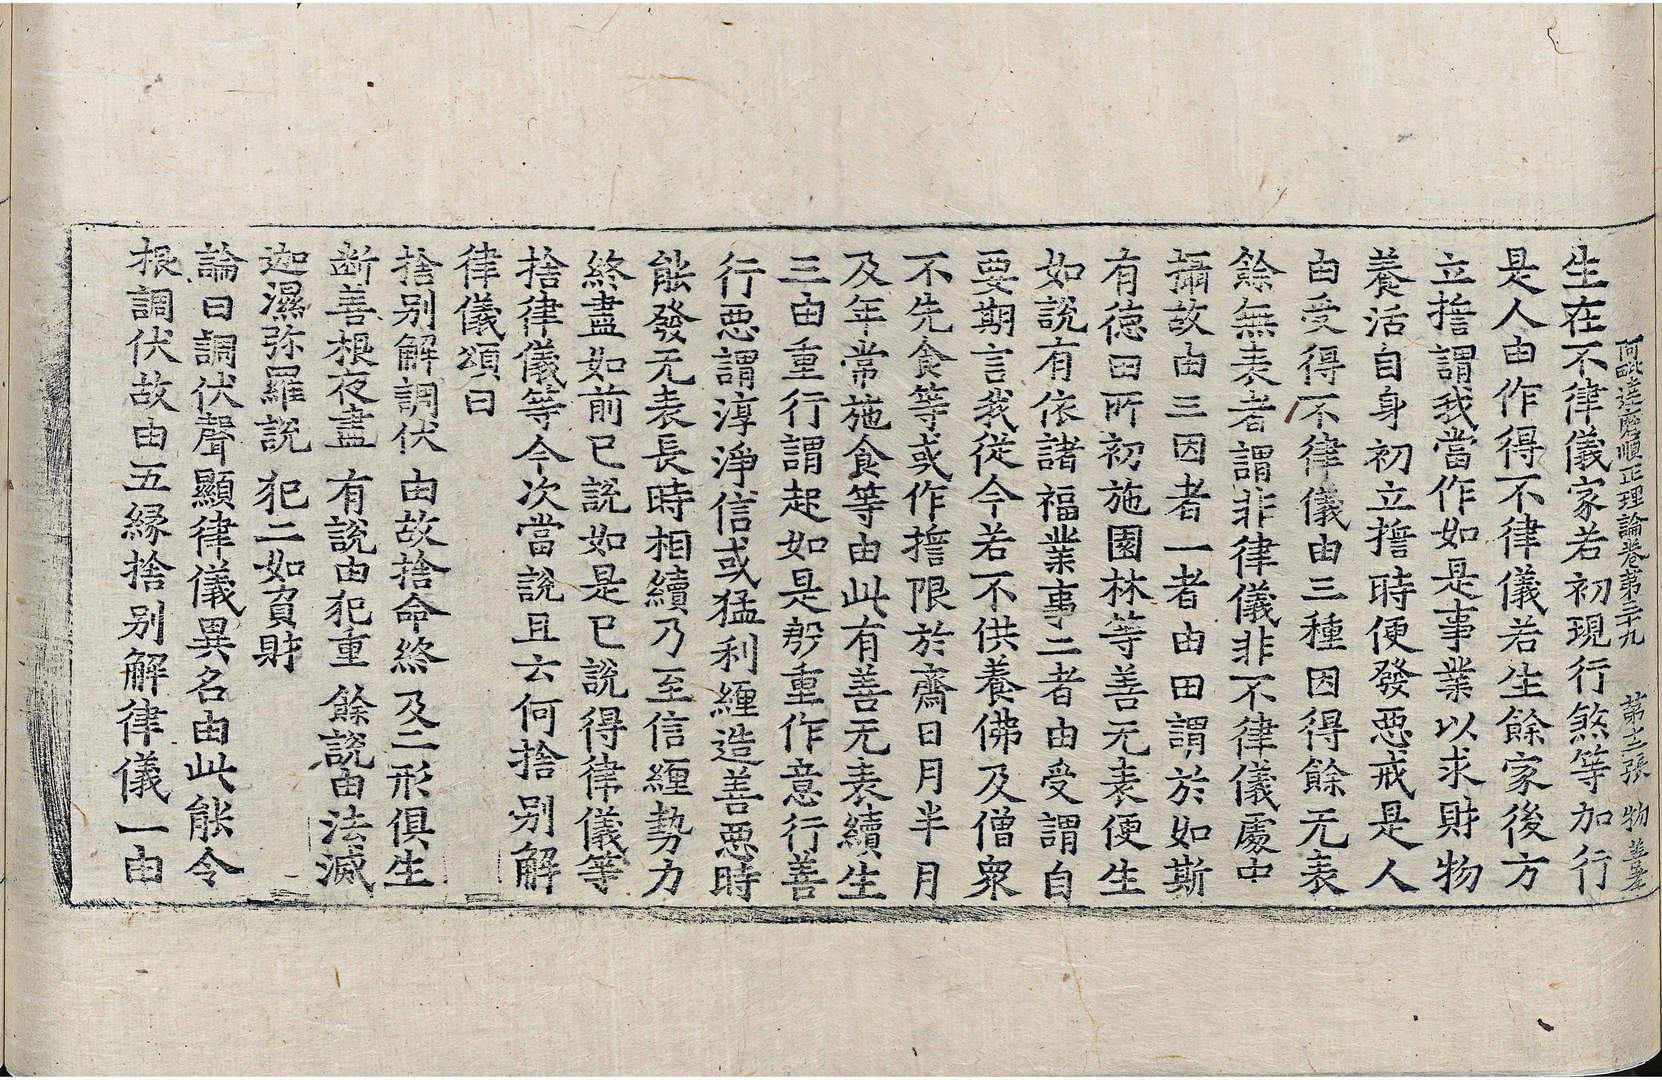 阿毗達磨順正理論卷第三十九 第十二張 物
生在不律儀家若初現行煞等加行
是人由作得不律儀若生餘家後方
立誓謂我當作如是事業以求財物
養活自身初立誓時便發惡戒是人
由受得不律儀由三種因得餘无表
餘無表者謂非律儀非不律儀處中
攝故由三因者一者由田謂於如斯
有德田所初施園林等善无表便生
如說有依諸福業事二者由受謂自
要期言我從今若不供養佛及僧衆
不先食等或作誓限於齋日月半月
及年常施食等由此有善无表續生
三由重行謂起如是殷重作意行善
行惡謂淳淨信或猛利纏造善惡時
能發无表長時相續乃至信纏勢力
終盡如前已說如是已說得律儀等
捨律儀等今次當說且云何捨別解
律儀頌曰
捨別解調伏 由故捨命終 及二形俱生
斷善根夜盡 有說由犯重 餘說由法滅
迦濕弥羅說 犯二如負財
論曰調伏聲顯律儀異名由此能令
根調伏故由五緣捨別解律儀一由